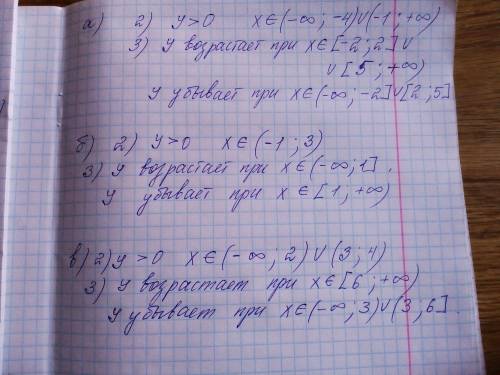 а) 2) y>0 x∈(-∞; -4)∪(-1; +∞)
3) y возрастает при x∈[-2; 2]∪
∪[5; +∞)
y убывает при x∈(-∞; -2]∪[2; 5]
б) 2) y>0 x∈(-1; 3)
3) y возрастает при x∈(-∞; 1].
y убывает при x∈[1, +∞)
в) 2) y>0 x∈(-∞; 2)∪(3; 4)
3) y возрастает при x∈[6; +∞)
y убывает при x∈(-∞; 3)∪(3; 6].